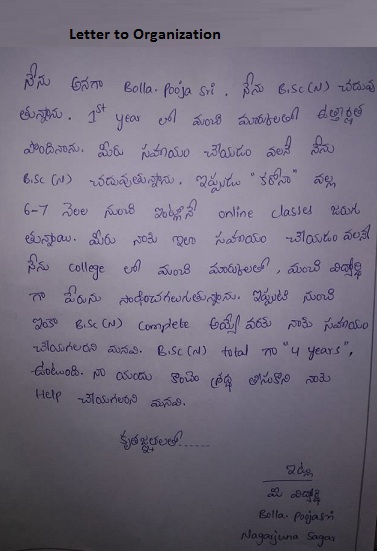 Letter to Organization
నేను అనగా Bolla. Pooja Sri. నేను B.Sc (N) చదువు
తున్నాను. 1st year లో మంచి మార్కులతో ఉత్తీర్ణత
పొందినాను. మీరు సహాయం చేయడం వలనే నేను
B.Sc (N) చదువుతున్నాను. ఇప్పుడు "కరోనా" వల్ల
6-7 నెలల నుంచి ఇంట్లోనే online classes జరుగు
తున్నాయి. మీరు నాకు ఇలా సహాయం చేయడం వలనే
నేను college లో మంచి మార్కులతో, మంచి విద్యార్థి
గా పేరును సాధించగలుగుతున్నాను. ఇప్పటి నుంచి
ఇంకా B.Sc (N) complete అయ్యే వరకు నాకు సహాయం
చేయగలరని మనవి. B.Sc (N) total గా "4 years",
ఉంటుంది. నా యందు కొంచెం శ్రద్ధ తీసుకొని నాకు
Help చేయగలరని మనవి.
కృతజ్ఞతలతో......
ఇట్లు
మీ విద్యార్థి
Bolla. Poojasri
Nagarjuna Sagar